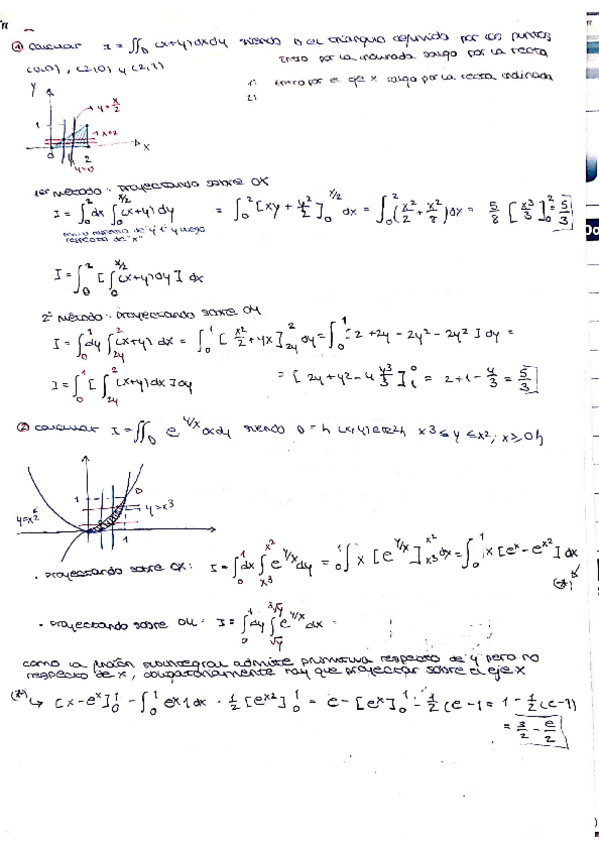 ① Calcular I = ∬_D (x+y) dx dy siendo D el triángulo definido por los puntos
(0,0), (2,0) y (2,1)
Entro por la inclinada salgo por la recta
1) Entro por el eje x salgo por la recta inclinada
2)
y
y = x/2
1
x=2
0
2
x
y=0
1er método: proyectando sobre OX
I = ∫_0^2 dx ∫_0^{x/2} (x+y) dy = ∫_0^2 [xy + y²/2]_0^{x/2} dx = ∫_0^2 (x²/2 + x²/8) dx = 5/8 [x³/3]_0^2 = 5/3
respecto de "x"
I = ∫_0^2 [∫_0^{x/2} (x+y) dy] dx
2º método: proyectando sobre OY
I = ∫_0^1 dy ∫_{2y}^2 (x+y) dx = ∫_0^1 [x²/2 + yx]_{2y}^2 dy = ∫_0^1 [2 + 2y - 2y² - 2y²] dy =
I = ∫_0^1 [∫_{2y}^2 (x+y) dx] dy
= [2y + y² - 4 y³/3]_1^0 = 2+1-4/3 = 5/3
② Calcular I = ∬_D e^{y/x} dx dy siendo D = { (x,y) ∈ ℝ² / x³ ≤ y ≤ x²; x ≥ 0 }
1
D
y=x³
y=x²
1
· Proyectando sobre OX: I = ∫_0^1 dx ∫_{x³}^{x²} e^{y/x} dy = ∫_0^1 x [e^{y/x}]_{x³}^{x²} dx = ∫_0^1 x [e^x - e^{x²}] dx
(*)
· Proyectando sobre OY: I = ∫_0^1 dy ∫_{√y}^{³√y} e^{y/x} dx =
como la función subintegral admite primitiva respecto de y pero no
respecto de x, obligatoriamente hay que proyectar sobre el eje x
(*) ↳ [x·e^x]_0^1 - ∫_0^1 e^x 1 dx · 1/2 [e^{x²}]_0^1 = e - [e^x]_0^1 - 1/2 (e-1 = 1 - 1/2 (e-1)
= 3/2 - e/2